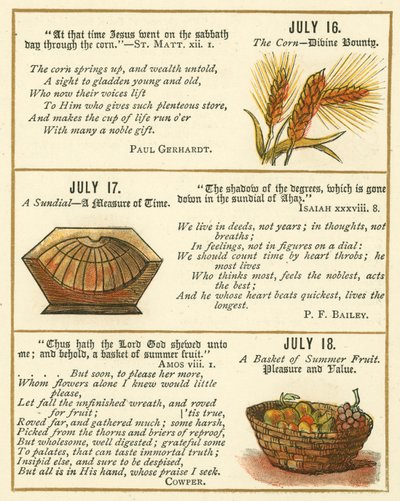 "At that time Jesus went on the sabbath
day through the corn."—St. Matt. xii. 1.
The corn springs up, and wealth untold,
A sight to gladden young and old,
Who now their voices lift
To Him who gives such plenteous store,
And makes the cup of life run o'er
With many a noble gift.
Paul Gerhardt.
JULY 16.
The Corn—Divine Bounty.
JULY 17.
A Sundial—A Measure of Time.
"The shadow of the degrees, which is gone
down in the sundial of Ahaz."
Isaiah xxxviii. 8.
We live in deeds, not years; in thoughts, not
breaths;
In feelings, not in figures on a dial:
We should count time by heart throbs; he
most lives
Who thinks most, feels the noblest, acts
the best;
And he whose heart beats quickest, lives the
longest.
P. F. Bailey.
"Thus hath the Lord God shewed unto
me; and behold, a basket of summer fruit."
Amos viii. 1.
. . . . But soon, to please her more,
Whom flowers alone I knew would little
please,
Let fall the unfinished wreath, and roved
for fruit; ['tis true,
Roved far, and gathered much; some harsh,
Picked from the thorns and briers of reproof,
But wholesome, well digested; grateful some
To palates, that can taste immortal truth;
Insipid else, and sure to be despised,
But all is in His hand, whose praise I seek.
Cowper.
JULY 18.
A Basket of Summer Fruit.
Pleasure and Value.